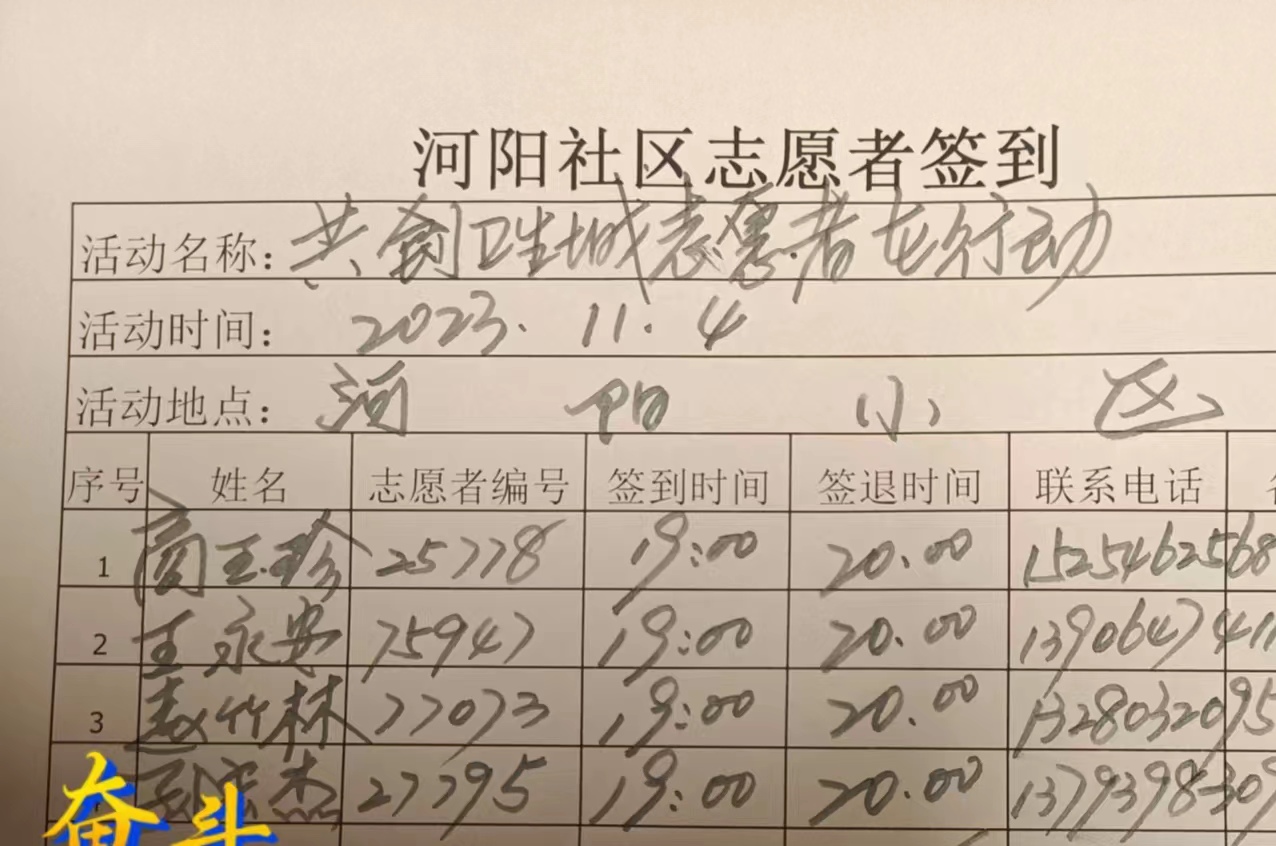 河阳社区志愿者签到
活动名称：共创卫生城志愿者在行动
活动时间： 2023.11.4
活动地点： 河阳小区
序号 姓名 志愿者编号 签到时间 签退时间 联系电话
1 商玉珍 25778 19:00 20.00 1525462568
2 王永安 75947 19:00 20.00 139064741
3 赵竹林 77073 19:00 20.00 1328032095
杰 27795 19:00 20.00
奋斗